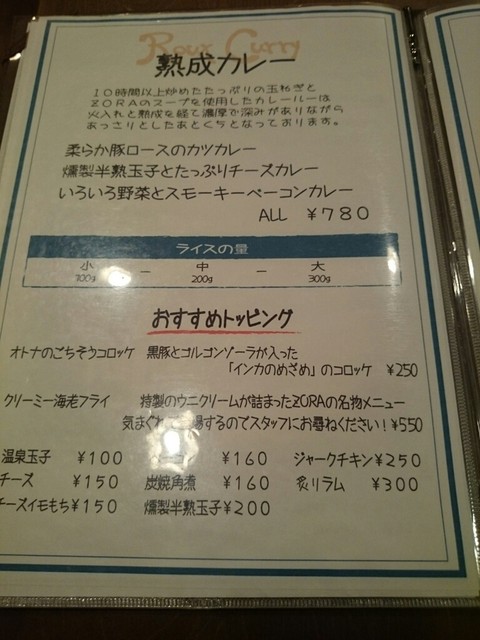 Roux Curry
熟成カレー
１０時間以上炒めたたっぷりの玉ねぎと
ZORAのスープを使用したカレールーは
火入れと熟成を経て濃厚で深みがありながら
あっさりとしたあとくちとなっております。
柔らか豚ロースのカツカレー
燻製半熟玉子とたっぷりチーズカレー
いろいろ野菜とスモーキーベーコンカレー
ALL ￥７８０
ライスの量
小 － 中 － 大
100g 200g 300g
おすすめトッピング
オトナのごちそうコロッケ 黒豚とゴルゴンゾーラが入った
「インカのめざめ」のコロッケ ￥250
クリーミー海老フライ 特製のウニクリームが詰まったZORAの名物メニュー
気まぐれ 場するのでスタッフにお尋ねください！￥550
温泉玉子 ￥１００ ベーコン ￥１６０ ジャークチキン￥２５０
チーズ ￥１５０ 炭焼角煮 ￥１６０ 炙りラム ￥３００
チーズイモもち￥１５０ 燻製半熟玉子￥２００